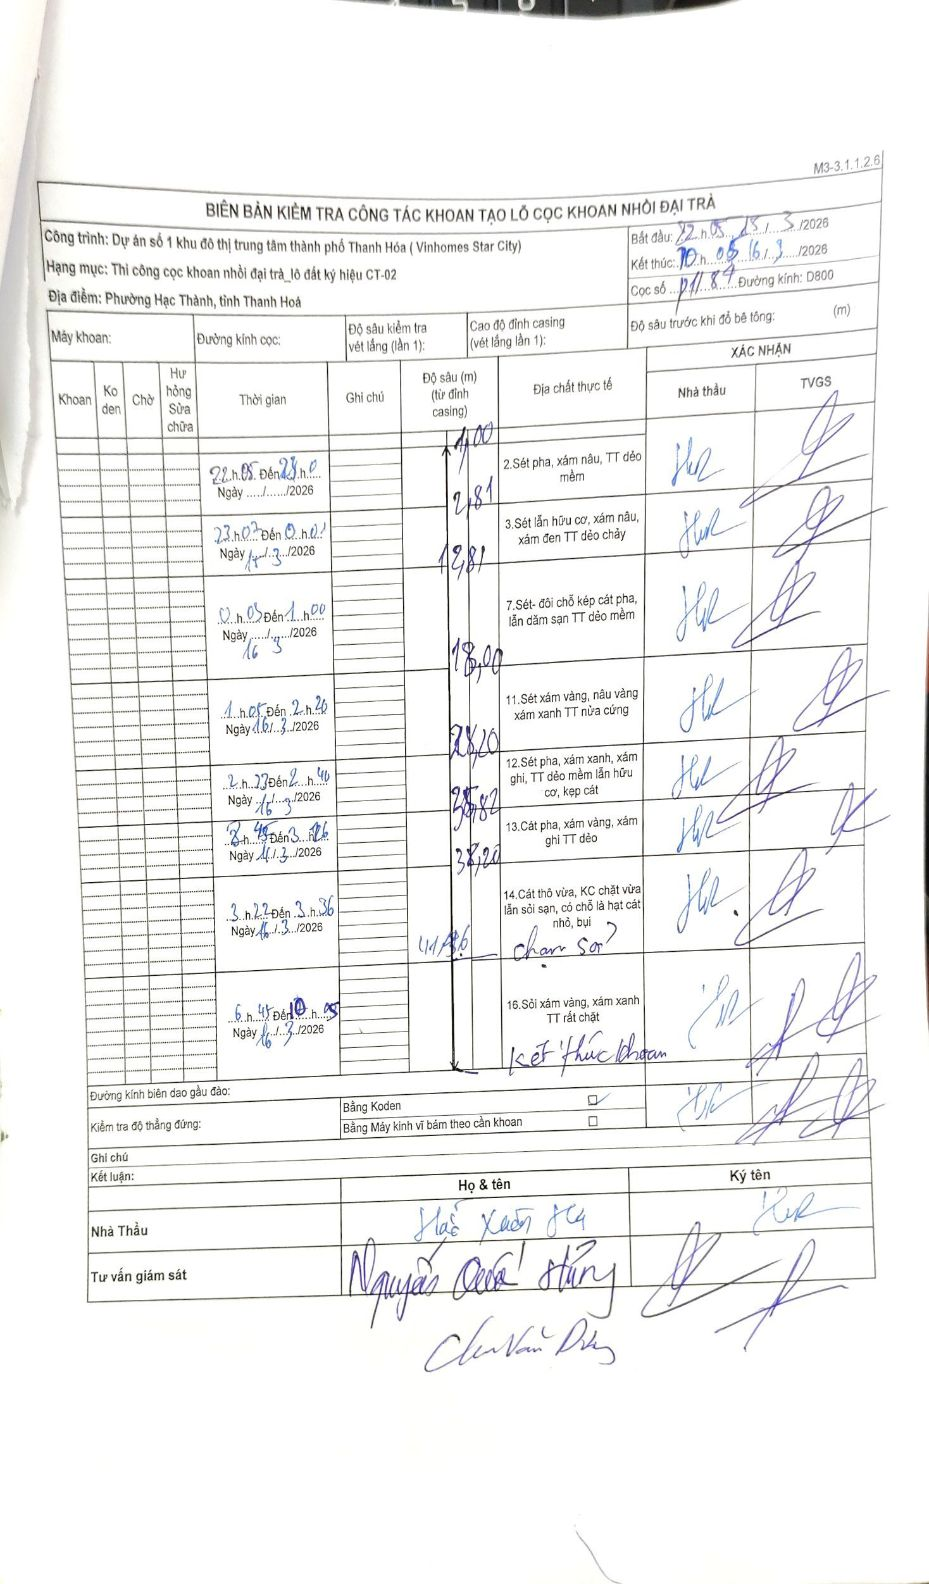 M3-3.1.1.2.6
BIÊN BẢN KIỂM TRA CÔNG TÁC KHOAN TẠO LỖ CỌC KHOAN NHỒI ĐẠI TRÀ
Công trình: Dự án số 1 khu đô thị trung tâm thành phố Thanh Hóa ( Vinhomes Star City)
Bắt đầu: 22 h 05 15 / 3 /2026
Hạng mục: Thi công cọc khoan nhồi đại trà_lô đất ký hiệu CT-02
Kết thúc: 10 h 05 16 / 3 /2026
Địa điểm: Phường Hạc Thành, tỉnh Thanh Hoá
Cọc số Đường kính: D800
Máy khoan:
Đường kính cọc:
Độ sâu kiểm tra vét lắng (lần 1):
Cao độ đỉnh casing (vét lắng lần 1):
Độ sâu trước khi đổ bê tông: (m)
XÁC NHẬN
Khoan
Ko den
Chờ
Hư hỏng Sửa chữa
Thời gian
Ghi chú
Độ sâu (m) (từ đỉnh casing)
Địa chất thực tế
Nhà thầu
TVGS
1,00
22 h 05 Đến 23 h 0
Ngày ...../....../2026
2.Sét pha, xám nâu, TT dẻo mềm
2,81
23 h 07 Đến 0 h 01
Ngày 15 / 3 /2026
3.Sét lẫn hữu cơ, xám nâu, xám đen TT dẻo chảy
12,81
0 h 03 Đến 1 h 00
Ngày 16 / 3 /2026
7.Sét- đôi chỗ kép cát pha, lẫn dăm sạn TT dẻo mềm
18,00
1 h 05 Đến 2 h 20
Ngày 16 / 3 /2026
11.Sét xám vàng, nâu vàng xám xanh TT nửa cứng
2 h 33 Đến 2 h 40
Ngày 16 / 3 /2026
12.Sét pha, xám xanh, xám ghi, TT dẻo mềm lẫn hữu cơ, kẹp cát
Ngày 16 / 3 /2026
13.Cát pha, xám vàng, xám ghi TT dẻo
38,20
3 h 22 Đến 3 h 36
Ngày 16 / 3 /2026
14.Cát thô vừa, KC chặt vừa lẫn sỏi sạn, có chỗ là hạt cát nhỏ, bụi
chạm sỏi
6 h 45 Đến 10 h 05
Ngày 16 / 3 /2026
16.Sỏi xám vàng, xám xanh TT rất chặt
Kết thúc khoan
Đường kính biên dao gầu đào:
Kiểm tra độ thẳng đứng:
Bằng Koden
Bằng Máy kinh vĩ bám theo cần khoan
Ghi chú
Kết luận:
Họ & tên
Ký tên
Nhà Thầu
Xuân
Tư vấn giám sát
Nguyễn Quốc Hưng
Chu Văn